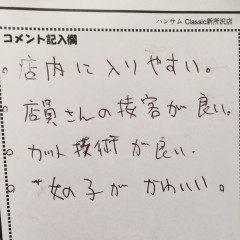 ハンサム Classic新所沢店
コメント記入欄
店内に入りやすい。
店員さんの接客が良い。
カット技術が良い.
女の子がかわいい。